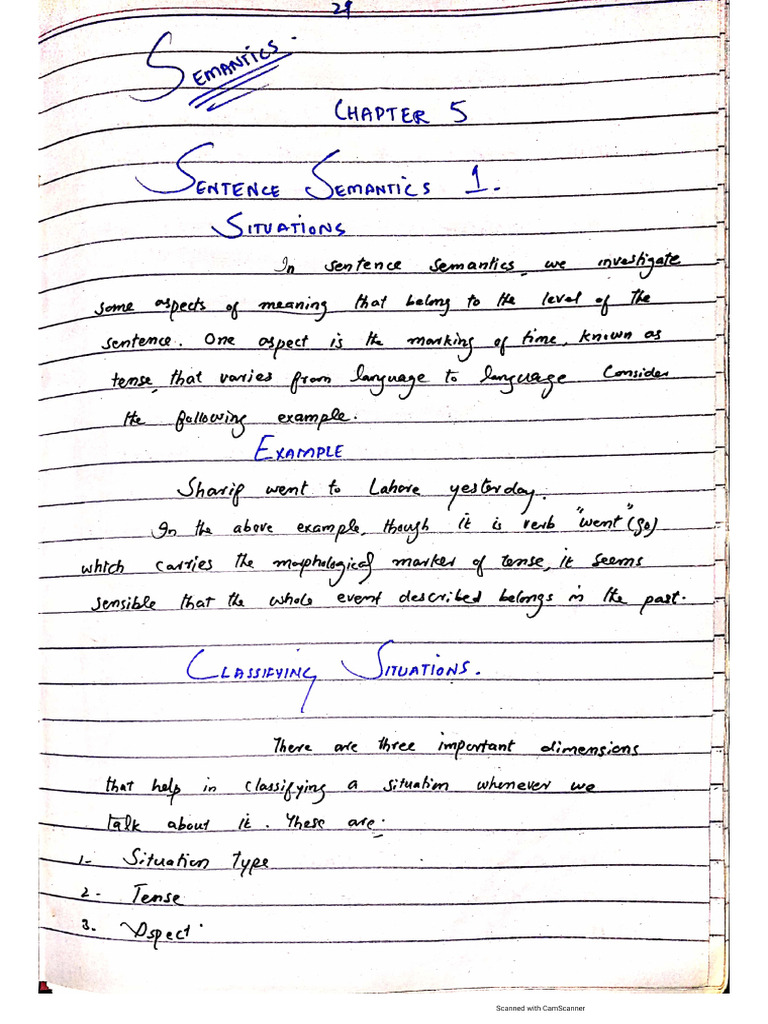 29
SEMANTICS.
CHAPTER 5
SENTENCE SEMANTICS 1.
SITUATIONS
In sentence semantics, we investigate
some aspects of meaning that belong to the level of the
sentence. One aspect is the marking of time, known as
tense, that varies from language to language Consider
the following example.
EXAMPLE
Sharif went to Lahore yesterday.
In the above example, though it is verb "went" (go)
which carries the morphological marker of tense, it seems
sensible that the whole event described belongs in the past.
CLASSIFYING SITUATIONS.
There are three important dimensions
that help in classifying a situation whenever we
talk about it. These are:
1- Situation Type
2- Tense
3. Aspect.
Scanned with CamScanner